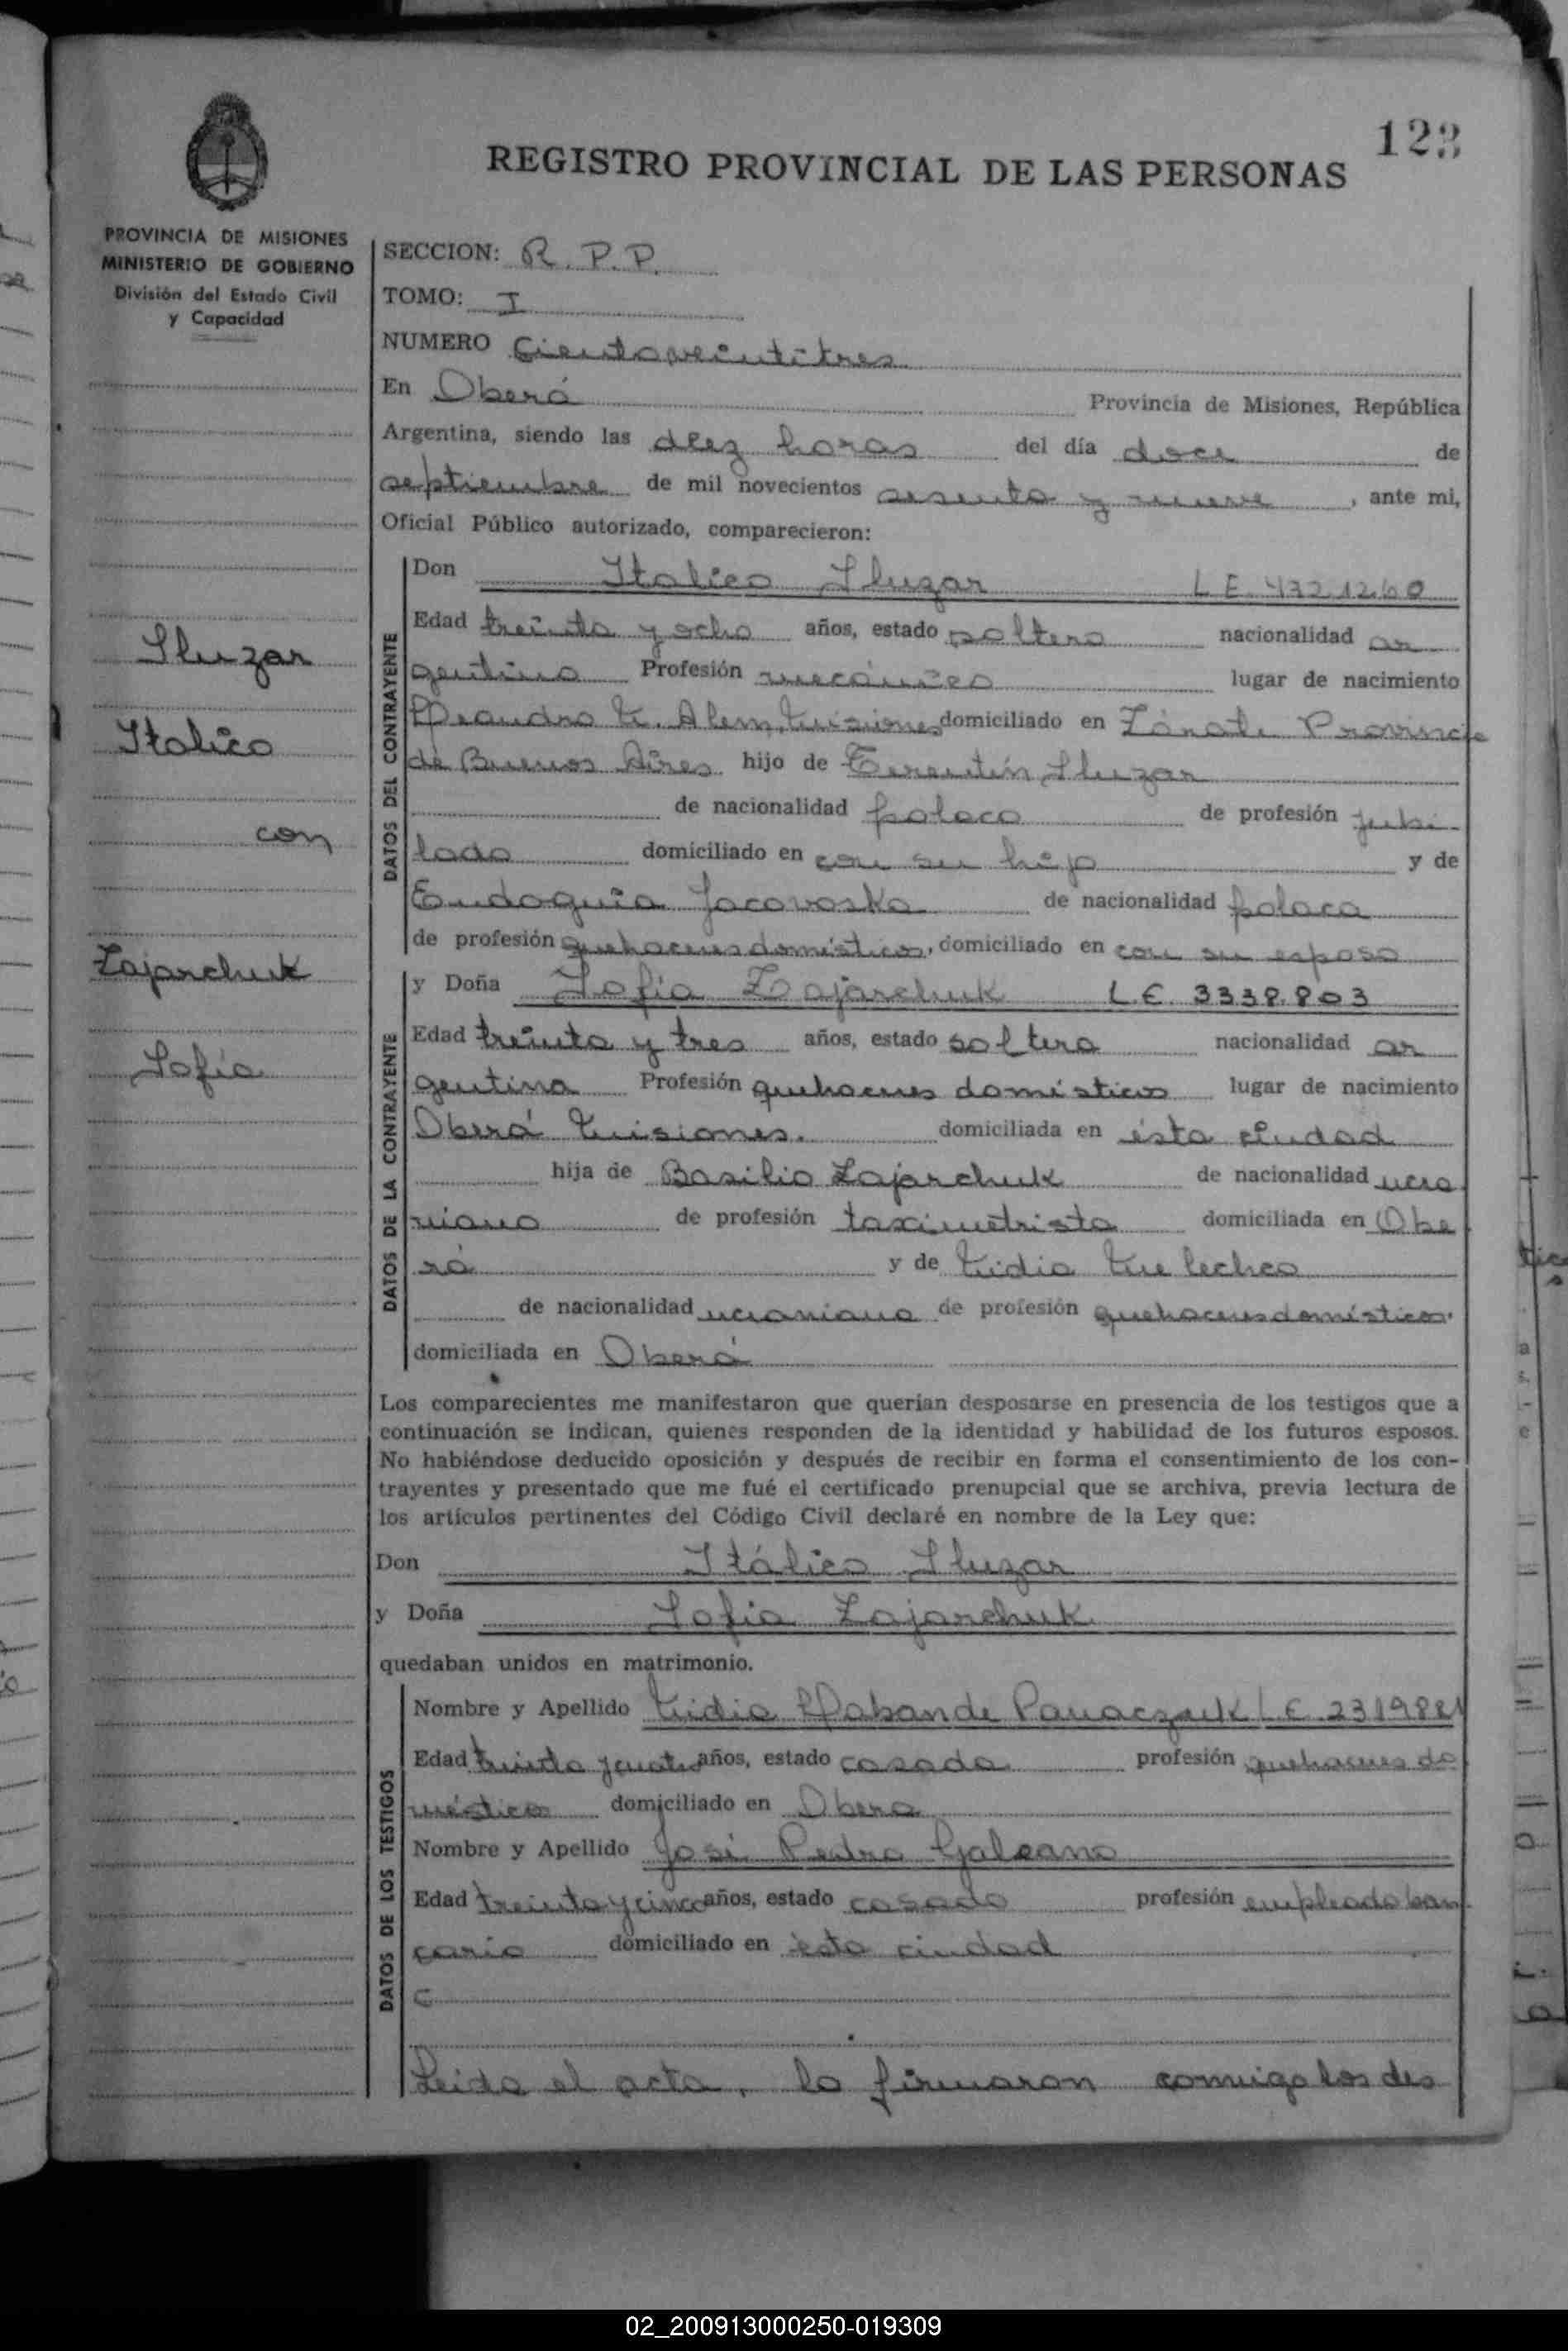 123
REGISTRO PROVINCIAL DE LAS PERSONAS
PROVINCIA DE MISIONES
MINISTERIO DE GOBIERNO
División del Estado Civil
y Capacidad
SECCION: R. P. P.
TOMO: I
NUMERO Cientoveintitres
En Oberá Provincia de Misiones, República
Argentina, siendo las diez horas del día doce de
septiembre de mil novecientos sesenta y nueve, ante mi,
Oficial Público autorizado, comparecieron:
Sluzar
Italico
con
Zajarchuk
Sofía
DATOS DEL CONTRAYENTE
Don Italico Sluzar L E.
Edad treinta y ocho años, estado soltero nacionalidad ar
gentino Profesión mecánico lugar de nacimiento
Leandro N. Alem, Misiones domiciliado en Zárate Provincia
de Buenos Aires hijo de Terentín Sluzar
de nacionalidad polaco de profesión jubi
lado domiciliado en con su hijo y de
Eudoquia Jacovoska de nacionalidad polaca
de profesión quehaceres domésticos, domiciliado en con su esposo
DATOS DE LA CONTRAYENTE
y Doña Sofía Zajarchuk L.E. 3338.803
Edad treinta y tres años, estado soltera nacionalidad ar
gentina Profesión quehaceres domésticos lugar de nacimiento
Oberá Misiones. domiciliada en ésta ciudad
hija de Basilio Zajarchuk de nacionalidad ucra
niano de profesión taximetrista domiciliada en Obe
rá y de Lidia
de nacionalidad ucraniana de profesión quehaceres domésticos.
domiciliada en Oberá
Los comparecientes me manifestaron que querían desposarse en presencia de los testigos que a
continuación se indican, quienes responden de la identidad y habilidad de los futuros esposos.
No habiéndose deducido oposición y después de recibir en forma el consentimiento de los con-
trayentes y presentado que me fué el certificado prenupcial que se archiva, previa lectura de
los artículos pertinentes del Código Civil declaré en nombre de la Ley que:
Don Itálico Sluzar
y Doña Sofia Zajarchuk
quedaban unidos en matrimonio.
DATOS DE LOS TESTIGOS
Nombre y Apellido Lidia de L E.
Edad treinta y cuatro años, estado casada profesión quehaceres do
mésticos domiciliado en Obera
Nombre y Apellido José Pedro Galeano
Edad treinta y cinco años, estado casado profesión empleado ban
cario domiciliado en ésta ciudad
Leida el acta, la firmaron conmigo los des
02_200913000250-019309